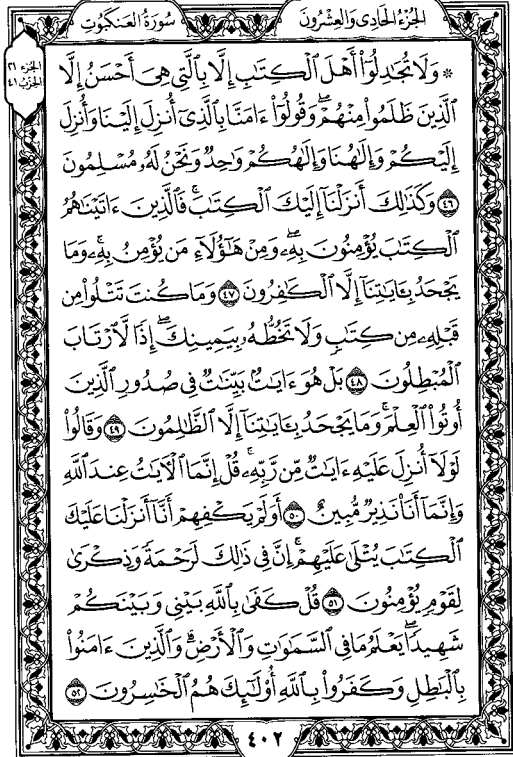 الجزء الحادي والعشرون
سورة العنكبوت
الجزء ٢١
الحزب ٤١
* وَلَا تُجَٰدِلُوٓاْ أَهۡلَ ٱلۡكِتَٰبِ إِلَّا بِٱلَّتِي هِيَ أَحۡسَنُ إِلَّا
ٱلَّذِينَ ظَلَمُواْ مِنۡهُمۡۖ وَقُولُوٓاْ ءَامَنَّا بِٱلَّذِيٓ أُنزِلَ إِلَيۡنَا وَأُنزِلَ
إِلَيۡكُمۡ وَإِلَٰهُنَا وَإِلَٰهُكُمۡ وَٰحِدٞ وَنَحۡنُ لَهُۥ مُسۡلِمُونَ
٤٦ وَكَذَٰلِكَ أَنزَلۡنَآ إِلَيۡكَ ٱلۡكِتَٰبَۚ فَٱلَّذِينَ ءَاتَيۡنَٰهُمُ
ٱلۡكِتَٰبَ يُؤۡمِنُونَ بِهِۦۖ وَمِنۡ هَٰٓؤُلَآءِ مَن يُؤۡمِنُ بِهِۦۚ وَمَا
يَجۡحَدُ بِـَٔايَٰتِنَآ إِلَّا ٱلۡكَٰفِرُونَ ٤٧ وَمَا كُنتَ تَتۡلُواْ مِن
قَبۡلِهِۦ مِن كِتَٰبٖ وَلَا تَخُطُّهُۥ بِيَمِينِكَۖ إِذٗا لَّٱرۡتَابَ
ٱلۡمُبۡطِلُونَ ٤٨ بَلۡ هُوَ ءَايَٰتُۢ بَيِّنَٰتٞ فِي صُدُورِ ٱلَّذِينَ
أُوتُواْ ٱلۡعِلۡمَۚ وَمَا يَجۡحَدُ بِـَٔايَٰتِنَآ إِلَّا ٱلظَّٰلِمُونَ ٤٩ وَقَالُواْ
لَوۡلَآ أُنزِلَ عَلَيۡهِ ءَايَٰتٞ مِّن رَّبِّهِۦۚ قُلۡ إِنَّمَا ٱلۡأٓيَٰتُ عِندَ ٱللَّهِ
وَإِنَّمَآ أَنَا۠ نَذِيرٞ مُّبِينٌ ٥٠ أَوَلَمۡ يَكۡفِهِمۡ أَنَّآ أَنزَلۡنَا عَلَيۡكَ
ٱلۡكِتَٰبَ يُتۡلَىٰ عَلَيۡهِمۡۚ إِنَّ فِي ذَٰلِكَ لَرَحۡمَةٗ وَذِكۡرَىٰ
لِقَوۡمٖ يُؤۡمِنُونَ ٥١ قُلۡ كَفَىٰ بِٱللَّهِ بَيۡنِي وَبَيۡنَكُمۡ
شَهِيدٗاۖ يَعۡلَمُ مَا فِي ٱلسَّمَٰوَٰتِ وَٱلۡأَرۡضِۗ وَٱلَّذِينَ ءَامَنُواْ
بِٱلۡبَٰطِلِ وَكَفَرُواْ بِٱللَّهِ أُوْلَٰٓئِكَ هُمُ ٱلۡخَٰسِرُونَ ٥٢
٤٠٢